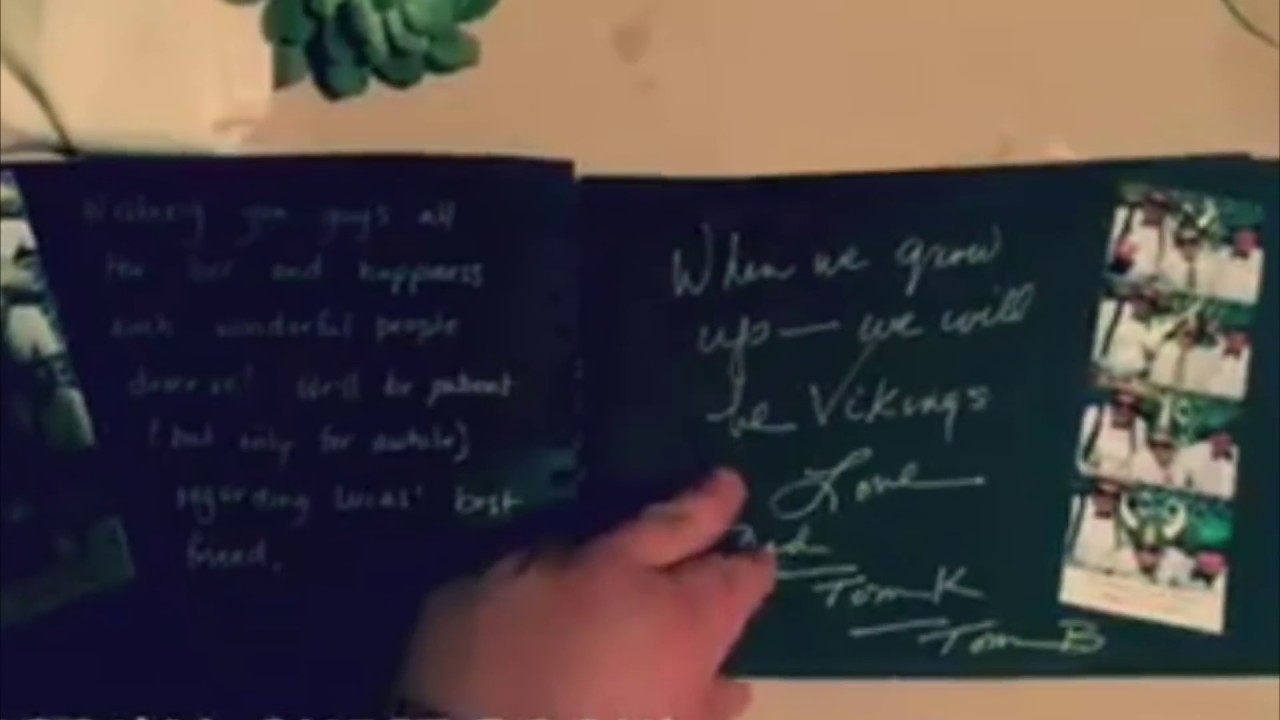 Wishing you guys all
the luv and happiness
such wonderful people
deserve! We'll be patient
(but only for awhile)
regarding Lucas' best
friend.
When we grow
up — we will
be Vikings
Love
Tom K
Tom B